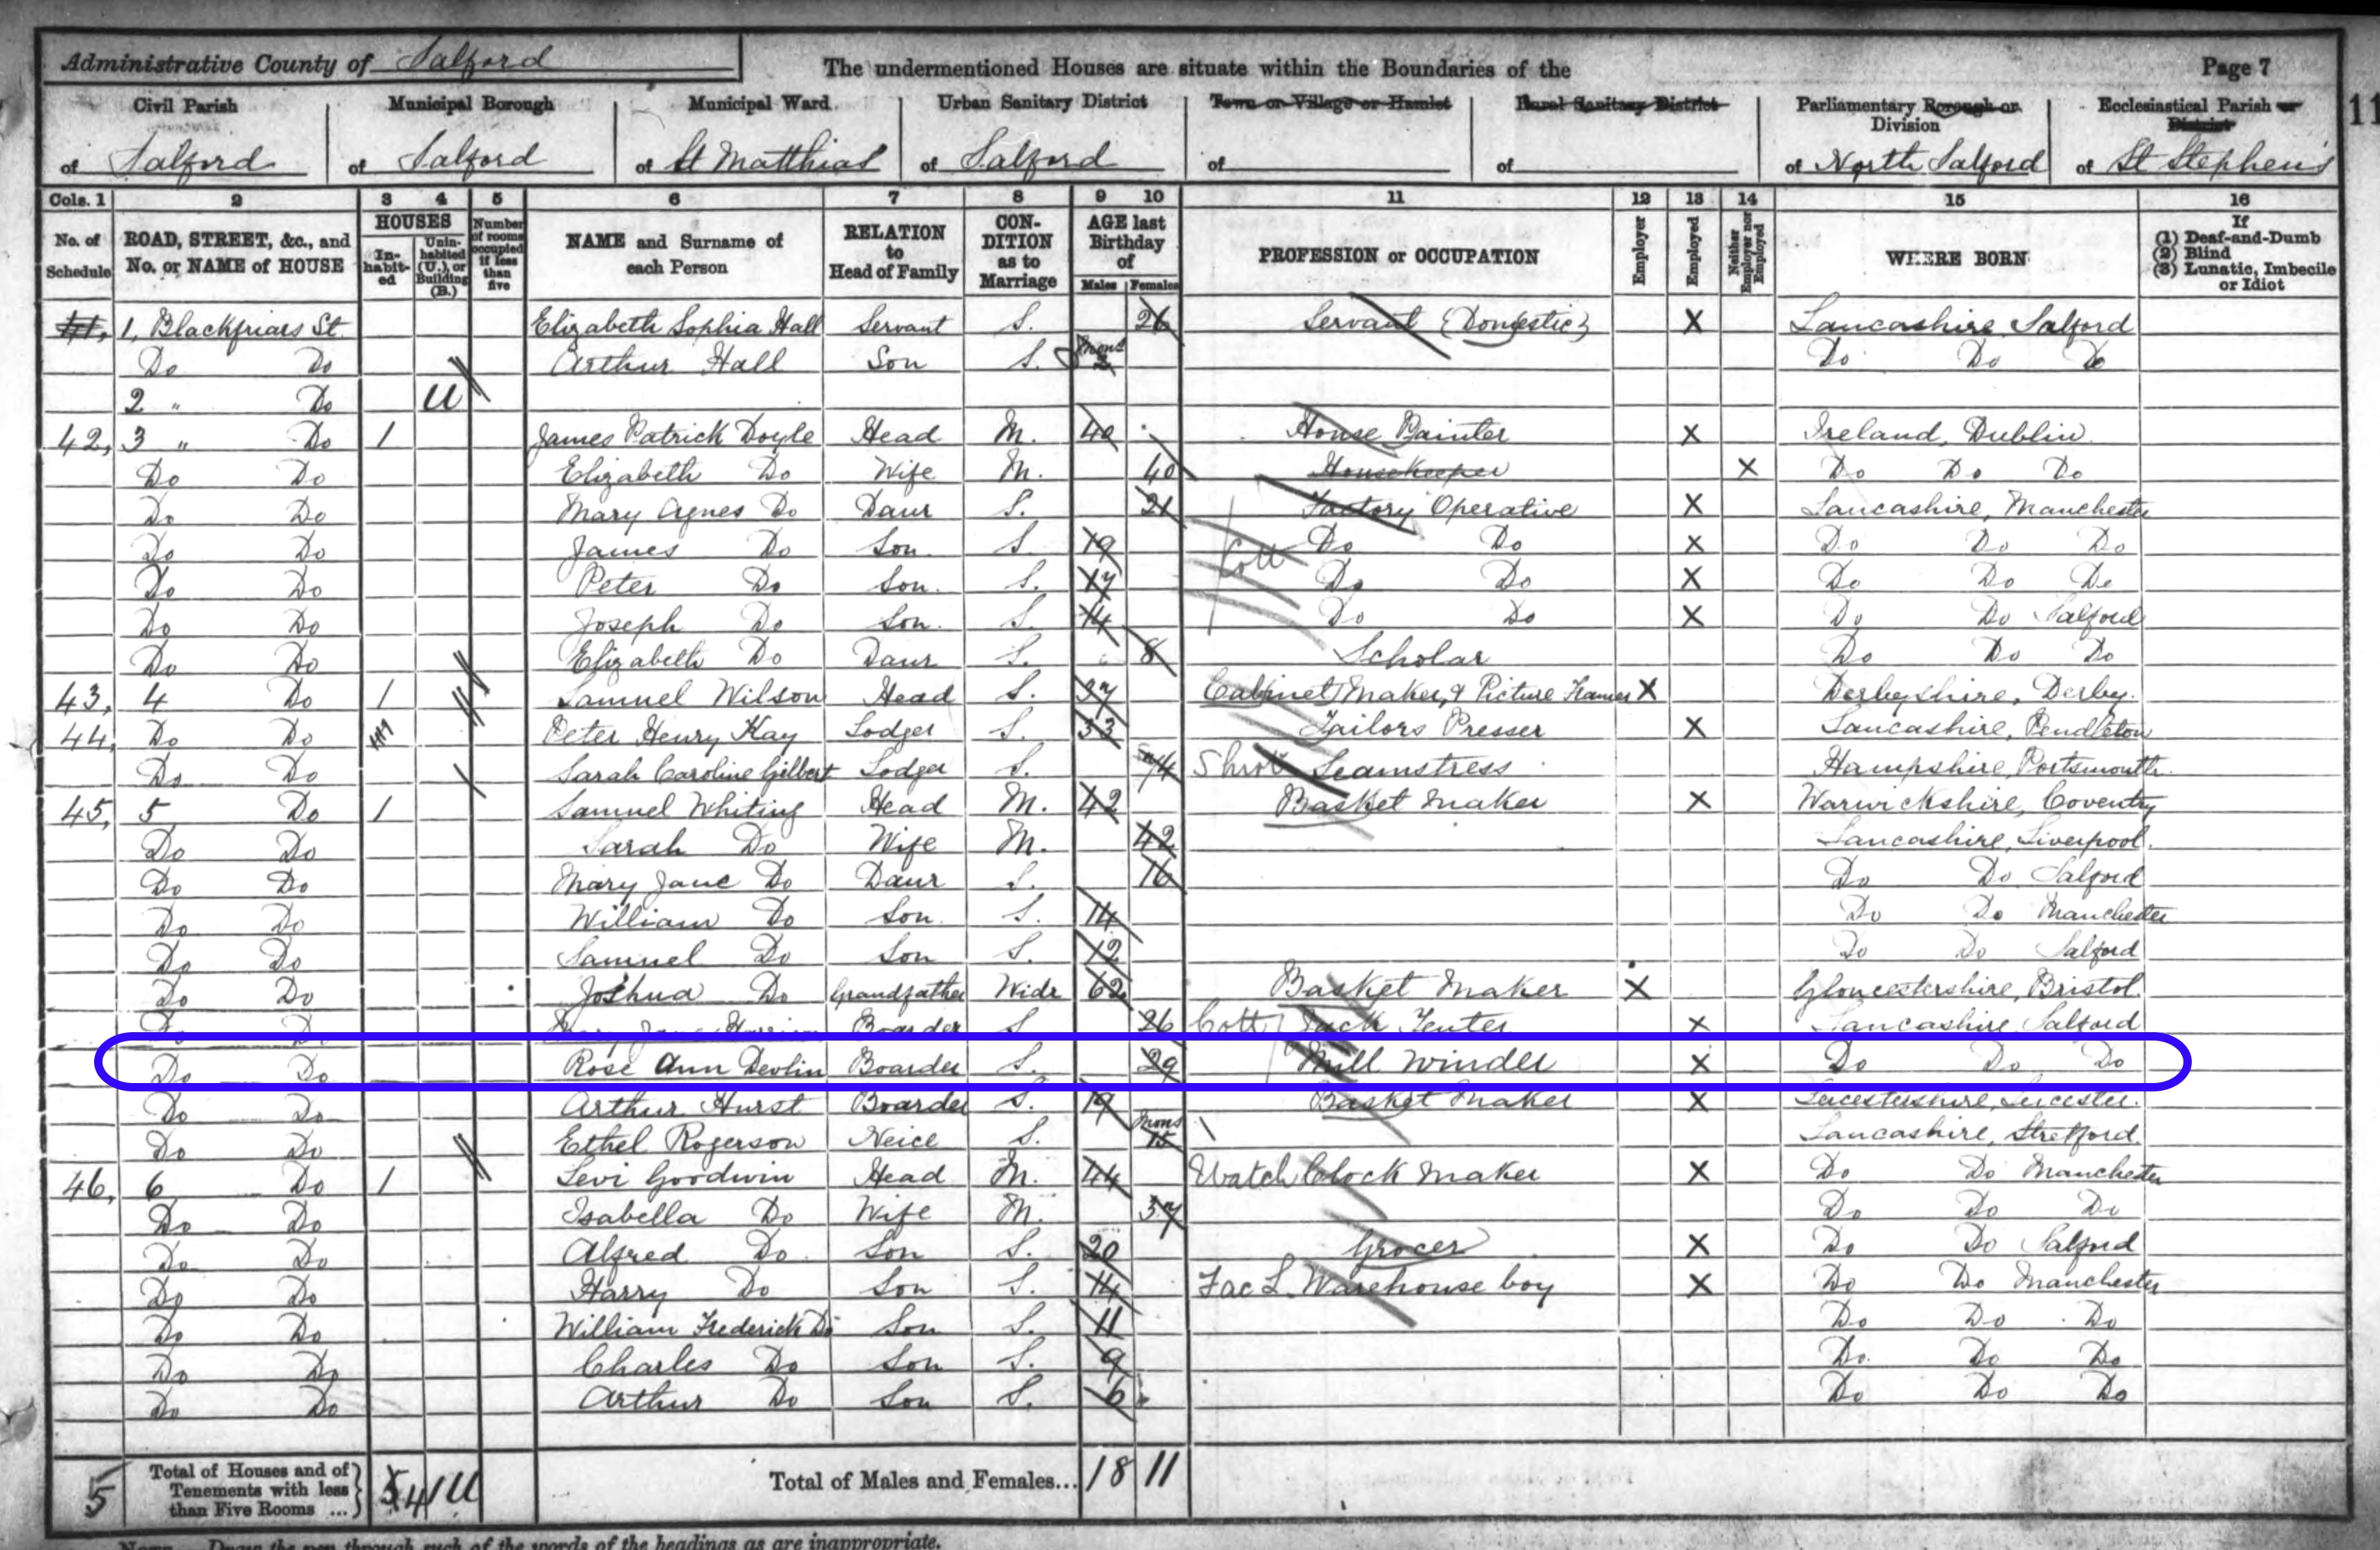 Administrative County of Salford The undermentioned Houses are situate within the Boundaries of the Page 7
Civil Parish Municipal Borough Municipal Ward Urban Sanitary District Town or Village or Hamlet Rural Sanitary District Parliamentary Borough or Division Ecclesiastical Parish or District 11
of Salford of Salford of St Matthias of Salford of of of North Salford of St Stephens
Cols. 1 2 3 4 5 6 7 8 9 10 11 12 13 14 15 16
No. of Schedule ROAD, STREET, &c., and No. or NAME of HOUSE HOUSES In-habit-ed Unin-habited (U.), or Building (B.) Number of rooms occupied if less than five NAME and Surname of each Person RELATION to Head of Family CON-DITION as to Marriage AGE last Birthday of Males Females PROFESSION or OCCUPATION Employer Employed Neither Employer nor Employed WHERE BORN If (1) Deaf-and-Dumb (2) Blind (3) Lunatic, Imbecile or Idiot
41, 1, Blackfriars St. Elizabeth Sophia Hall Servant S. 26 Servant (Domestic) X Lancashire Salford
Do Do Arthur Hall Son S. mons 2 Do Do Do
2 " Do U
42, 3 " Do 1 James Patrick Doyle Head M. 40 House Painter X Ireland, Dublin
Do Do Elizabeth Do Wife M. 40 Housekeeper X Do Do Do
Do Do Mary Agnes Do Daur S. 21 Factory Operative X Lancashire, Manchester
Do Do James Do Son S. 19 Cott Do Do X Do Do Do
Do Do Peter Do Son. S. 17 Do Do X Do Do Do
Do Do Joseph Do Son. S. 14 Do Do X Do Do Salford
Do Do Elizabeth Do Daur S. 8 Scholar Do Do Do
43, 4 Do 1 Samuel Wilson Head S. 37 Cabinet Maker, & Picture Framer X Derbyshire, Derby.
44, Do Do Peter Henry Kay Lodger S. 33 Tailors Presser X Lancashire, Pendleton
Do Do Sarah Caroline Gilbert Lodger S. 74 Shirt Seamstress Hampshire, Portsmouth.
45, 5 Do 1 Samuel Whiting Head M. 42 Basket Maker X Warwickshire, Coventry
Do Do Sarah Do Wife M. 42 Lancashire, Liverpool.
Do Do Mary Jane Do Daur S. 16 Do Do Salford
Do Do William Do Son. S. 14 Do Do Manchester
Do Do Samuel Do Son S. 12 Do Do Salford
Do Do Joshua Do Grandfather Widr 62 Basket Maker X Gloucestershire, Bristol.
Do Do Mary Jane Boarder S 26 Cott Jack Tenter X Lancashire, Salford
Do Do Rose Ann Devlin Boarder S. 29 Mill Winder X Do Do Do
Do Do Arthur Hurst Boarder S. 19 Basket Maker X Leicestershire, Leicester.
Do Do Ethel Rogerson Neice S. mons 15 Lancashire, Stretford
46, 6 Do 1 Levi Goodwin Head M. 44 Watch Clock Maker X Do Do Manchester
Do Do Isabella Do Wife M. 37 Do Do Do
Do Do Alfred Do Son S. 20 Grocer X Do Do Salford
Do Do Harry Do Son S. 14 Fac L. Warehouse boy X Do Do Manchester
Do Do William Frederick Do Son S. 11 Do Do Do
Do Do Charles Do Son S. 9 Do Do Do
Do Do Arthur Do Son S. 6 Do Do Do
5 Total of Houses and of Tenements with less than Five Rooms ... 5 4 1U Total of Males and Females... 18 11
NOTE.—Draw the pen through such of the words of the headings as are inappropriate.